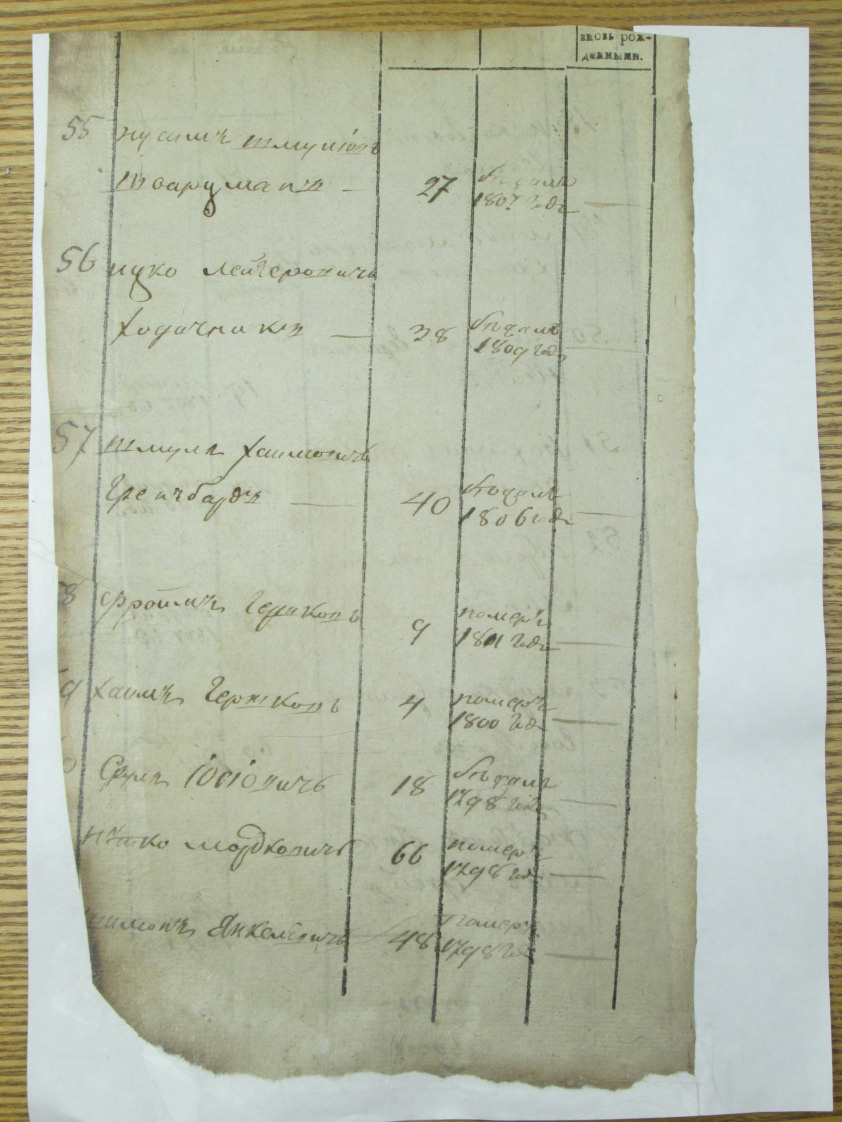 вновь рож-
денными.
55 нусимъ шмуліовъ
шварцманъ — 27 бѣжалъ
1807 года —
56 ицко лейзеровичъ
ходачникъ — 38 бѣжалъ
1809 года —
57 шмуль хаимовичъ
40 бѣжалъ
1806 года —
8 фроимъ гершковъ 9 померъ
1801 года —
9 хаимъ гершковъ 4 померъ
1800 года —
Сруль іосіовичъ 18 бѣжалъ
1798 года —
ицко мордковичъ 66 померъ
1798 года —
шимонъ Янкелевичъ 48 померъ
1798 года —